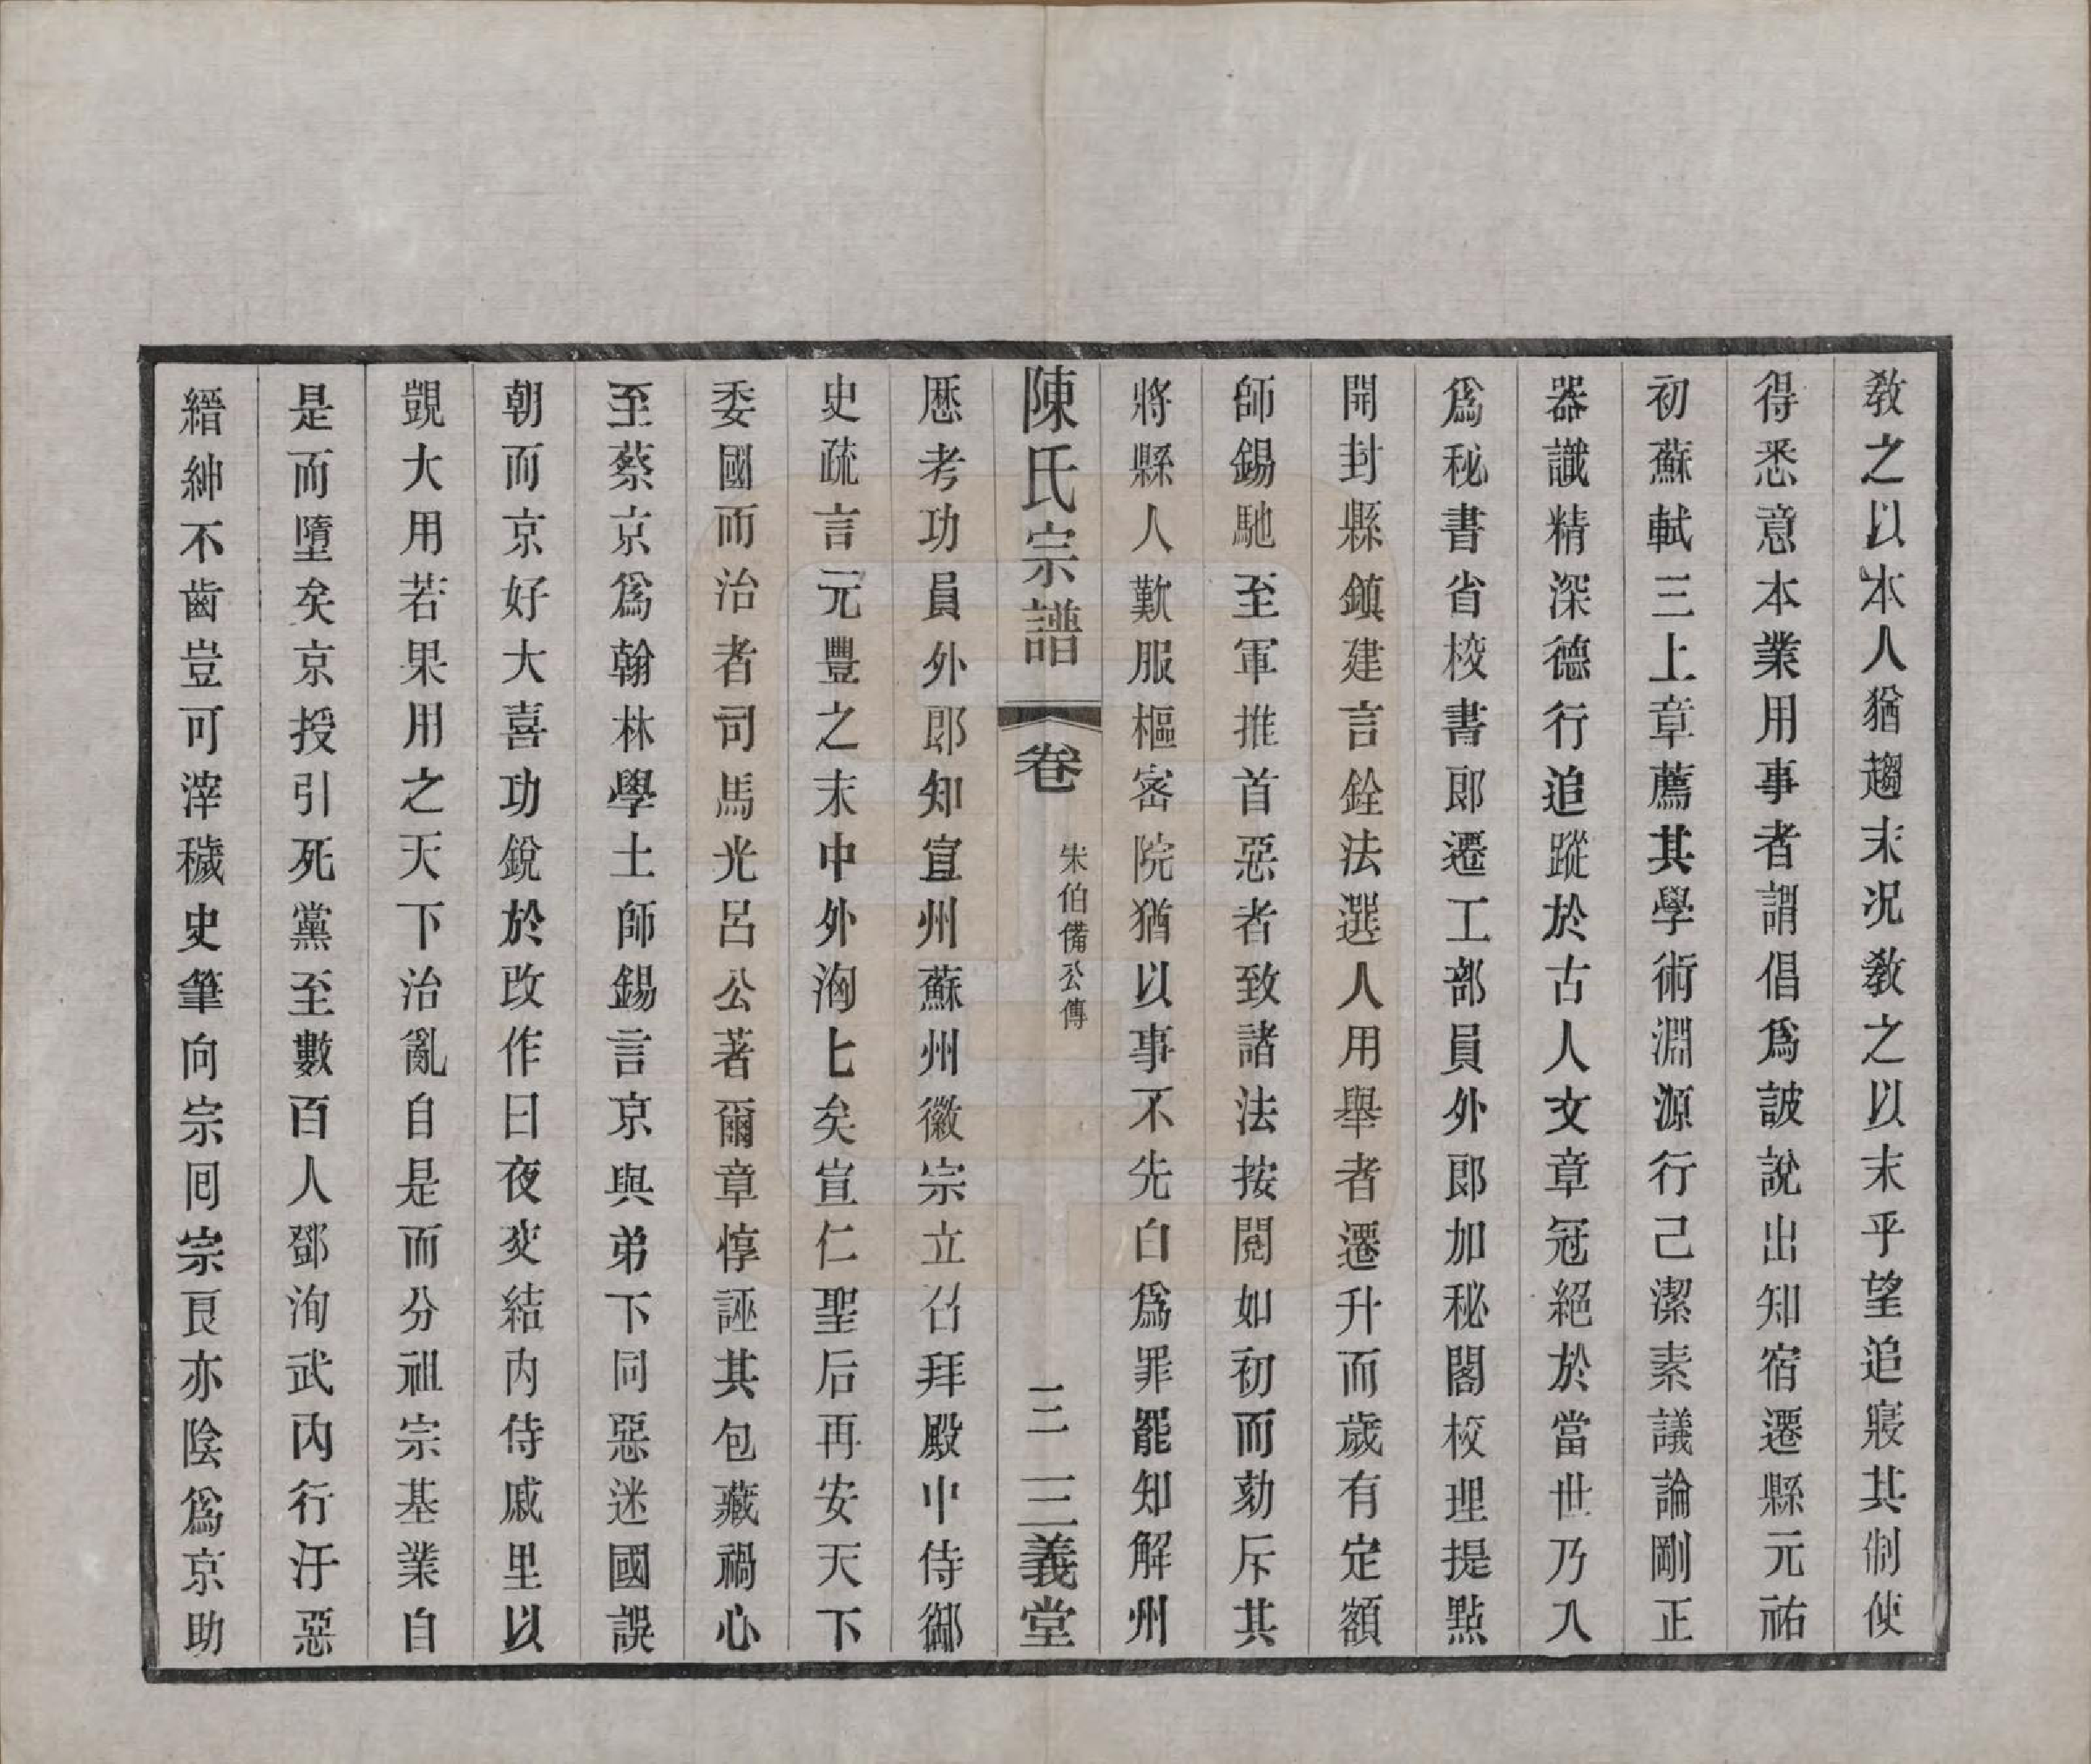 教之以本人猶趨末況教之以末乎望追寢其制使
得悉意本業用事者謂倡爲詖說出知宿遷縣元祐
初蘇軾三上章薦其學術淵源行己潔素議論剛正
器識精深德行追蹤於古人文章冠絕於當世乃入
爲秘書省校書郎遷工部員外郎加秘閣校理提點
開封縣鎮建言銓法選人用舉者遷升而歲有定額
師錫馳至軍推首惡者致諸法按閱如初而劾斥其
將縣人歎服樞密院猶以事不先白爲罪罷知解州
陳氏宗譜 卷 宋伯備公傳 三 三義堂
歷考功員外郎知宣州蘇州徽宗立召拜殿中侍御
史疏言元豐之末中外洶匕矣宣仁聖后再安天下
委國而治者司馬光呂公著爾章惇誣其包藏禍心
至蔡京爲翰林學士師錫言京與弟下同惡迷國誤
朝而京好大喜功銳於改作日夜交結內侍戚里以
覬大用若果用之天下治亂自是而分祖宗基業自
是而墮矣京授引死黨至數百人鄧洵武內行汙惡
縉紳不齒豈可滓穢史筆向宗回宗良亦陰爲京助